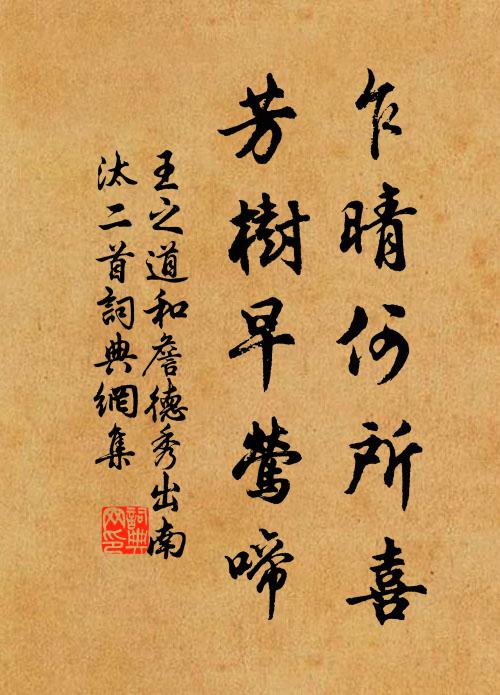 乍晴何所喜
芳樹早鶯啼
王之道和詹德秀出南
汰二首詞典網集
詞典網印